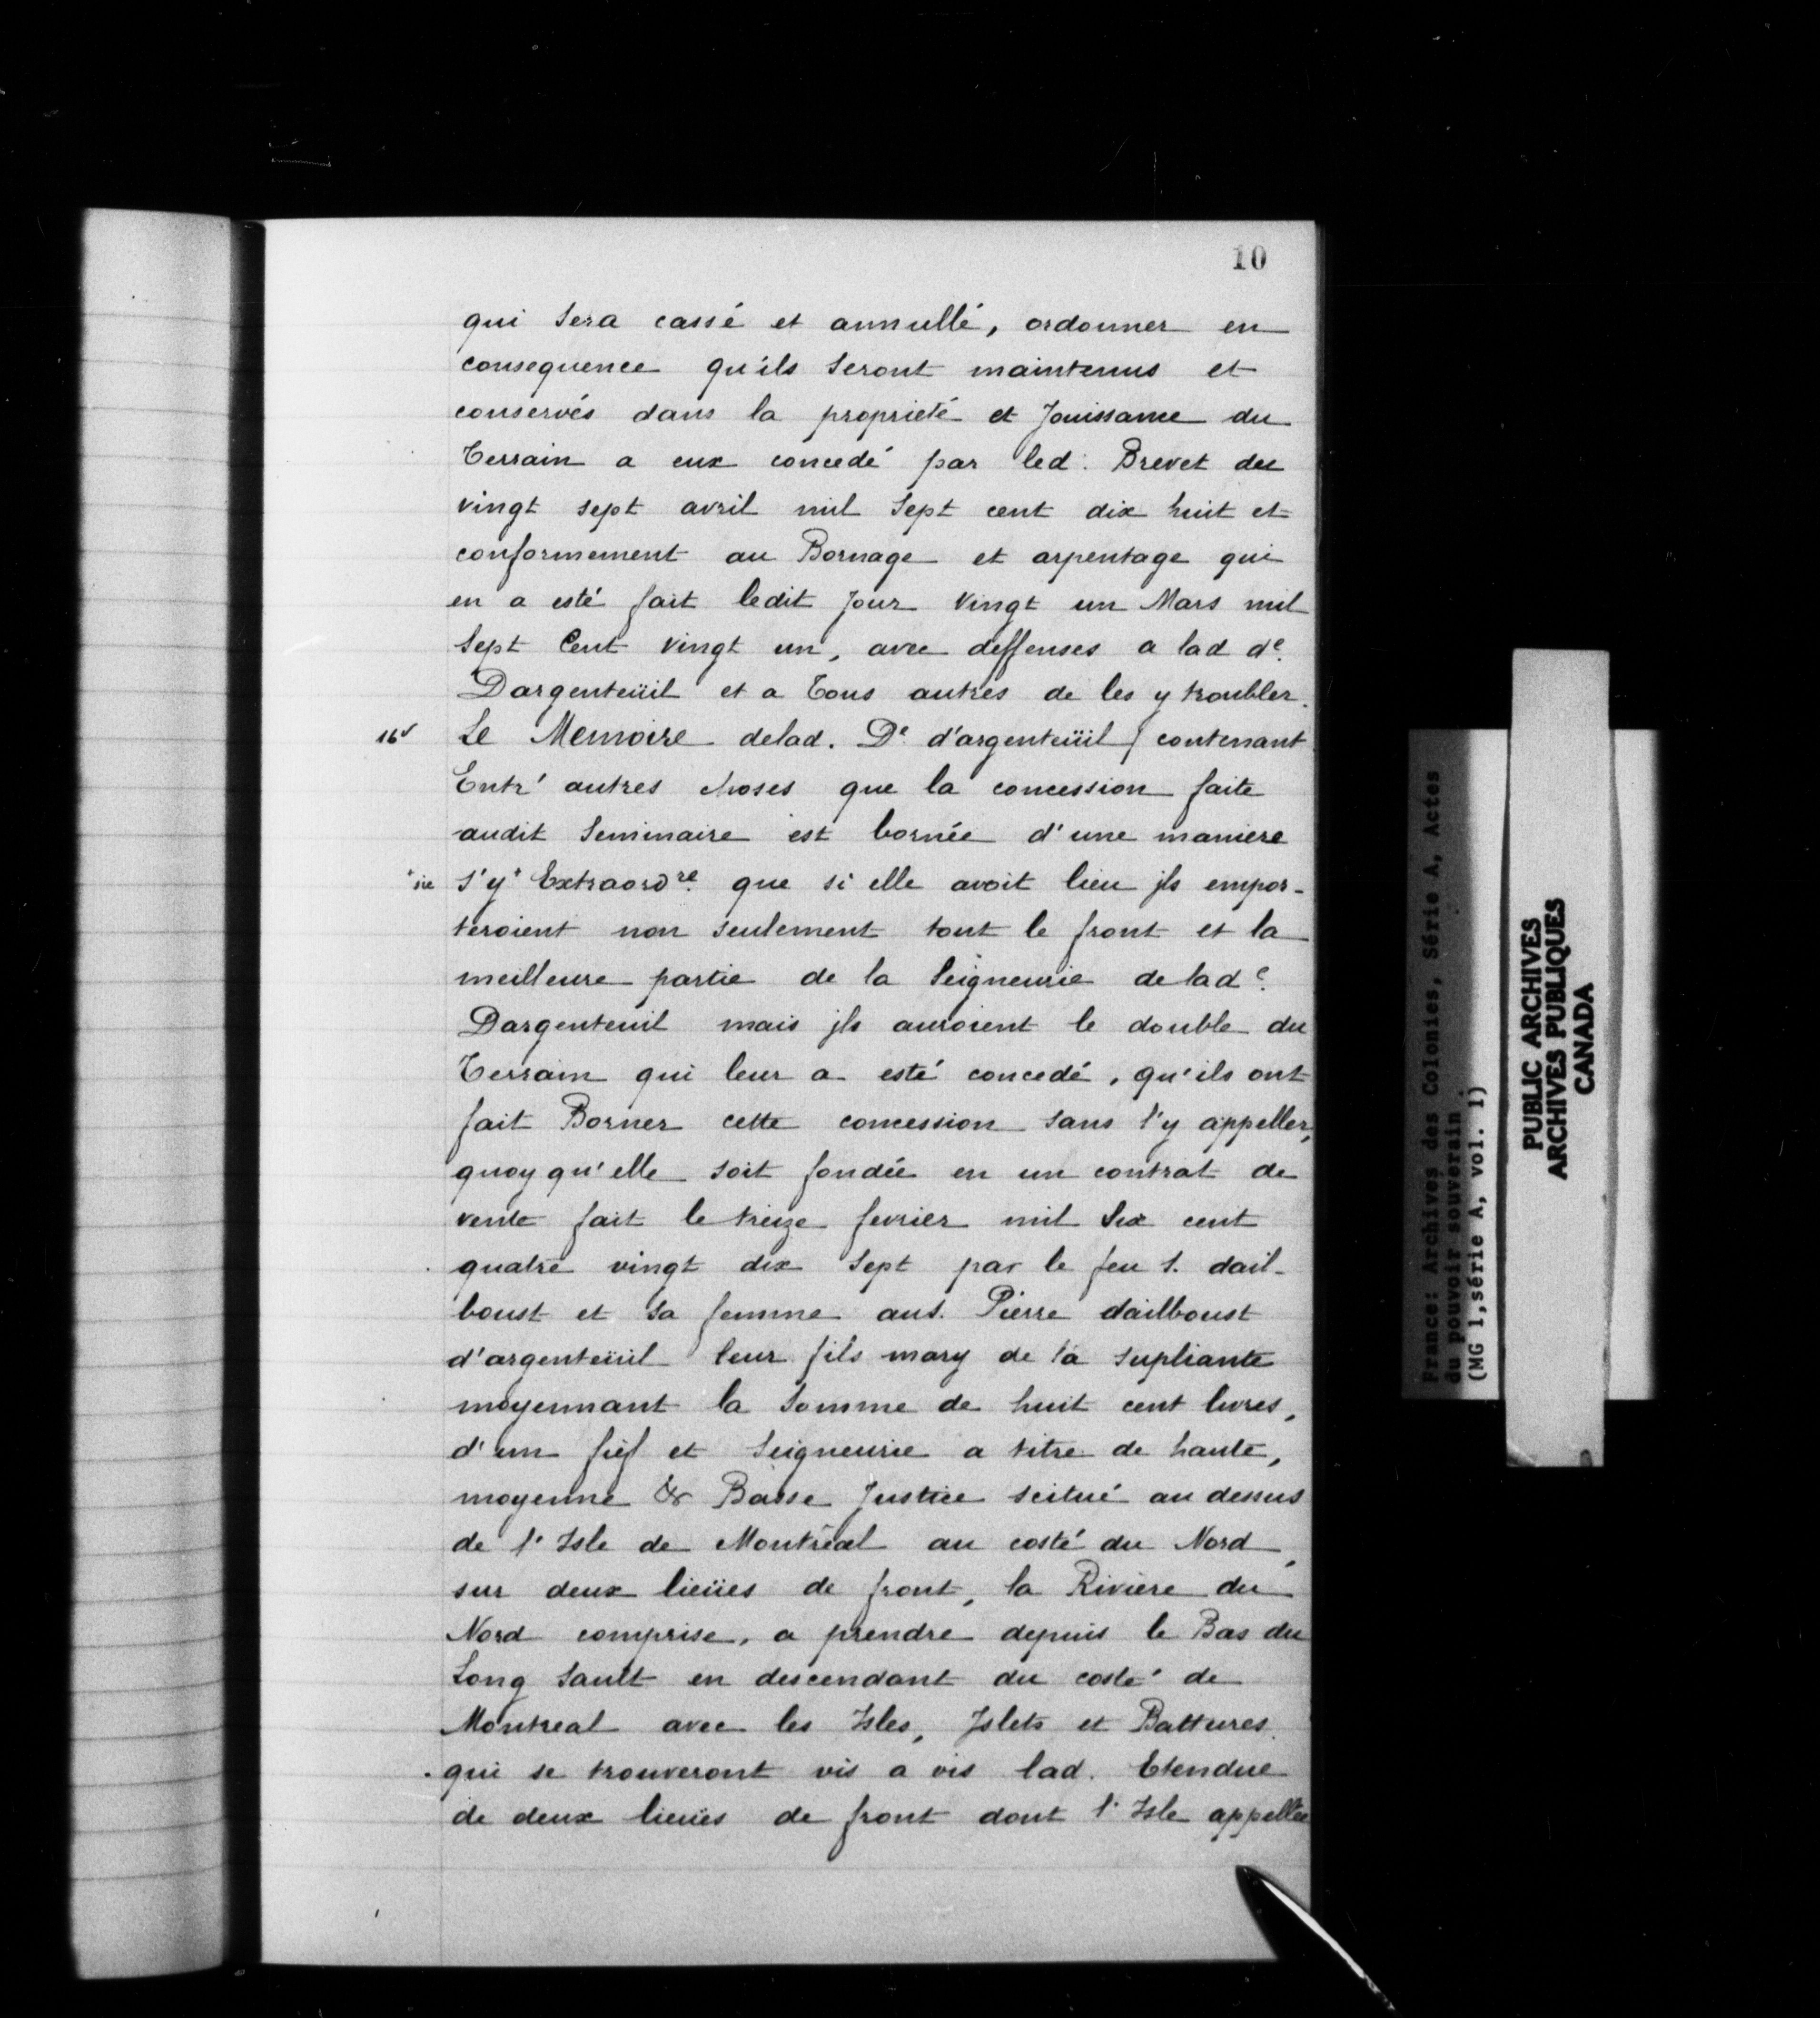 10
qui sera cassé et annullé, ordonner en
consequence qu'ils seront maintenus et
conservés dans la proprieté et Jouissance du
Terrain a eux concedé par led. Brevet du
vingt sept avril mil sept cent dix huit et
conformement au Bornage et arpentage qui
en a esté fait ledit Jour vingt un Mars mil
sept Cent vingt un, avec deffenses a lad de.
Dargenteüil et a Tous autres de les y troubler.
16v Le Memoire delad. De d'argenteüil / contenant
Entr' autres choses que la concession faite
audit Seminaire est bornée d'une maniere
+sic s'y+ Extraordre. que si elle avoit lieu jls empor-
teroient non seulement tout le front et la
meilleure partie de la Seigneurie de lad e.
Dargenteuil mais jls auroient le double du
Terrain qui leur a esté concedé, qu'ils ont
fait Borner cette concession sans l'y appeller,
quoy qu'elle soit fondée en un contrat de
vente fait le treize fevrier mil Six cent
quatre vingt dix Sept par le feu s. dail-
boust et sa femme aus. Pierre dailboust
d'argenteüil leur fils mary de la supliante
moyennant la somme de huit cent livres,
d'un fief et Seigneurie a titre de haute,
moyenne & Basse Justice scitué au dessus
de l'Isle de Montréal au costé du Nord,
sur deux lieües de front, la Riviere du
Nord comprise, a prendre depuis le Bas du
Long Sault en descendant du costé de
Montreal avec les Isles, Jslets et Battures
qui se trouveront vis a vis lad. Etendue
de deux lieües de front dont l'Isle appellée
France: Archives des Colonies, Série A, Actes
du pouvoir souverain
(MG 1,série A, vol. 1)
PUBLIC ARCHIVES
ARCHIVES PUBLIQUES
CANADA